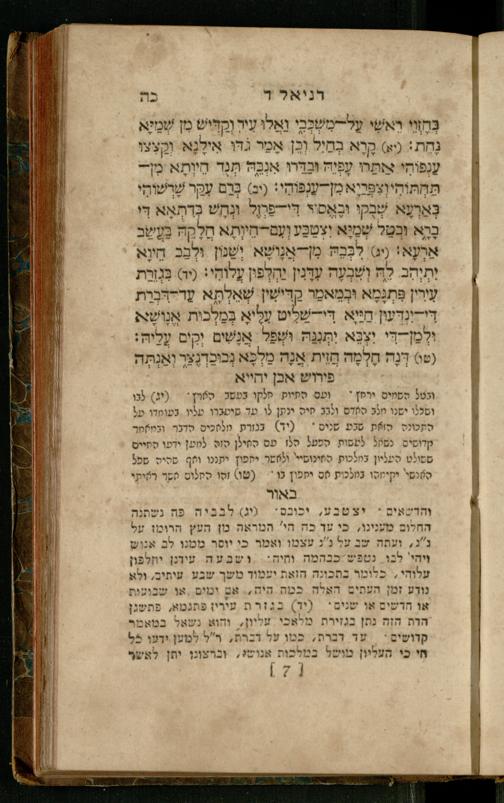 דניאל ד כה
בְּחֶזְוֵי רֵאשִׁי עַל־מִשְׁכְּבִי וַאֲלוּ עִיר וְקַדִּישׁ מִן שְׁמַיָּא
נָחִת : (יא) קָרֵא בְחַיִל וְכֵן אָמַר גֹּדּוּ אִילָנָא וְקַצִּצוּ
עַנְפוֹהִי אַתַּרוּ עָפְיֵהּ וּבַדַּרוּ אִנְבֵּהּ תְּנֻד חֵיוְתָא מִן־
תַּחְתּוֹהִי וְצִפְּרַיָּא מִן־עַנְפוֹהִי : (יב) בְּרַם עִקַּר שָׁרְשׁוֹהִי
בְּאַרְעָא שְׁבֻקוּ וּבֶאֱסוּר דִּי־פַרְזֶל וּנְחָשׁ בְּדִתְאָא דִּי
בָרָא וּבְטַל שְׁמַיָּא יִצְטַבַּע וְעִם־חֵיוְתָא חֲלָקֵהּ בַּעֲשַׂב
אַרְעָא : (יג) לִבְבֵהּ מִן־אֲנוֹשָׁא יְשַׁנּוֹן וּלְבַב חֵיוָא
יִתְיְהִב לֵהּ וְשִׁבְעָה עִדָּנִין יַחְלְפוּן עֲלוֹהִי : (יד) בִּגְזֵרַת
עִירִין פִּתְגָמָא וּבְמֵאמַר קַדִּישִׁין שְׁאֵלְתָא עַד־דִּבְרַת
דִּי־יִנְדְּעוּן חַיַּיָּא דִּי־שַׁלִּיט עִלָּיָא בְּמַלְכוּת אֲנוֹשָׁא
וּלְמַן־דִּי יִצְבֵּא יִתְּנִנַּהּ וּשְׁפַל אֲנָשִׁים יְקִים עֲלַיהּ :
(טו) דְּנָה חֶלְמָא חֲזֵית אֲנָה מַלְכָּא נְבוּכַדְנֶצַּר וְאַנְתָּה
פירוש אבן יחייא
ובטל השמים ירחץ · ועם החיות חלקו בעשב הארץ · (יג) לבו
ושכלו ישנו מלב האדם ולבב חיה ינתן לו עד שיעברו עליו בעומדו על
התכונה הזאת שבע שנים · (יד) בגזרת מלאכים הדבר ובמאמר
קדושים נשאל לעשות הפעל הלז עם האילן הזה למען ידעו החיים
ששולט העליון במלכות האינושי ולאשר יחפוץ יתננו ואף שהיה שפל
האנשי יקימהו במלכות אם יחפוץ בו · (טו) זהו החלום אשר ראיתי
באור
והדשאים · יצטבע, יכובס · (יג) לבביה פה נשתנה
החלום מענינו, כי עד כה הי' המראה מן העץ הרומז על
נ"נ, ועתה שב על נ"נ עצמו ואמר כי יוסר ממנו לב אנוש
ויהי' לבו נטפש כבהמה וחיה · ושבעה עידנן יחלפון
עלוהי, כלומר בתכונה הזאת יעמוד משך שבע עיתים, ולא
נודע זמן העתים האלה כמה היה, אם ימים או שבועות
או חדשים או שנים · (יד) בגזרת עירין פתגמא, פתשגן
הדת הזה נתן בגזירת מלאכי עליון, והוא נשאל במאמר
קדושים · עד דברת, כמו על דברת, ר"ל למען ידעו כל
חי כי העליון מושל במלכות אנושי, וברצונו יתן לאשר
[ 7 ]